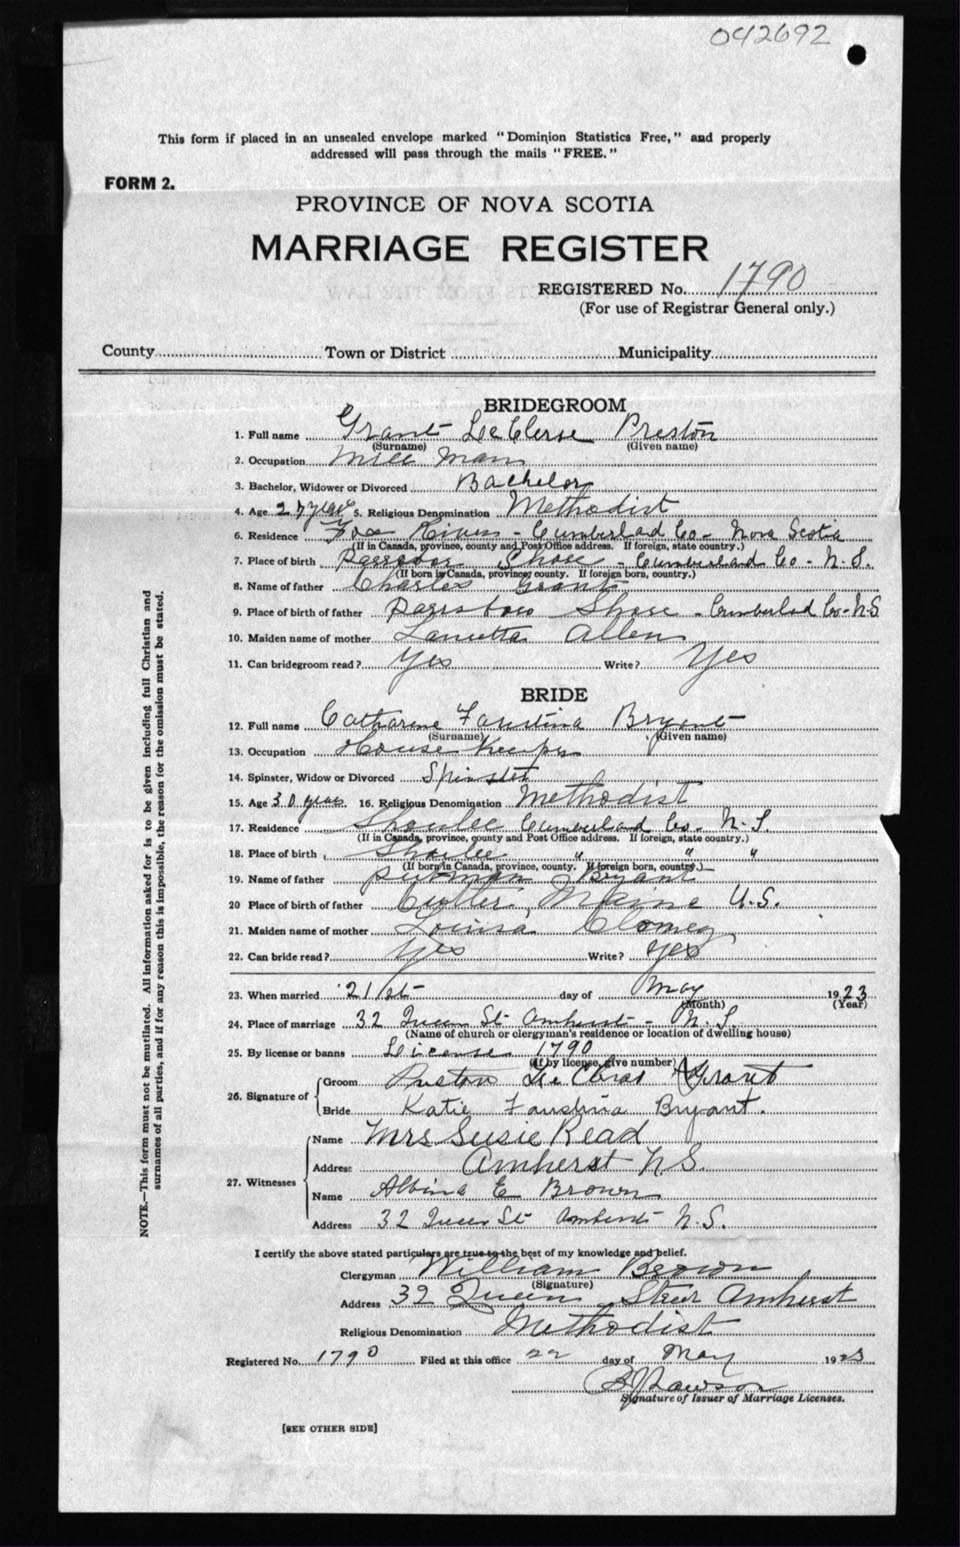 042692
This form if placed in an unsealed envelope marked "Dominion Statistics Free," and properly
addressed will pass through the mails "FREE."
FORM 2.
PROVINCE OF NOVA SCOTIA
MARRIAGE REGISTER
REGISTERED No. 1790
(For use of Registrar General only.)
County Town or District Municipality
BRIDEGROOM
1. Full name Grant LeClerse Preston
(Surname) (Given name)
2. Occupation Mill Man
3. Bachelor, Widower or Divorced Bachelor
4. Age 27 years 5. Religious Denomination Methodist
6. Residence Fox River - Cumberland Co - Nova Scotia
(If in Canada, province, county and Post Office address. If foreign, state country.)
7. Place of birth Parrsboro Shore - Cumberland Co - N.S.
(If born in Canada, province, county. If foreign born, country.)
8. Name of father Charles Grant
9. Place of birth of father Parrsboro Shore - Cumberlad Co - N.S
10. Maiden name of mother Allen
11. Can bridegroom read? Yes Write? Yes
BRIDE
12. Full name Catharine Faustina Bryant
(Surname) (Given name)
13. Occupation House Keeper
14. Spinster, Widow or Divorced Spinster
15. Age 30 years 16. Religious Denomination Methodist
17. Residence Shoulee Cumberlad Co - N.S.
(If in Canada, province, county and Post Office address. If foreign, state country.)
18. Place of birth Shoulee " " "
(If born in Canada, province, county. If foreign born, country.)
19. Name of father Bryant
20 Place of birth of father Cutler, Maine U.S.
21. Maiden name of mother Louisa
22. Can bride read? Yes Write? Yes
23. When married 21st day of May 1923
(Month) (Year)
24. Place of marriage 32 Queen St Amherst - N.S.
(Name of church or clergyman's residence or location of dwelling house)
25. By license or banns License 1790
(If by license, give number)
26. Signature of Groom Preston Grant
Bride Katie Faustina Bryant.
27. Witnesses Name Mrs Susie Read
Address Amherst N.S.
Name Albina E Brown
Address 32 Queen St Amherst N.S.
I certify the above stated particulars are true to the best of my knowledge and belief.
Clergyman William Brown
(Signature)
Address 32 Queen Street Amherst
Religious Denomination Methodist
Registered No. 1790 Filed at this office 22 day of May 1923
Signature of Issuer of Marriage Licenses.
[SEE OTHER SIDE]
NOTE.—This form must not be mutilated. All information asked for is to be given including full Christian and
surnames of all parties, and if for any reason this is impossible, the reason for the omission must be stated.